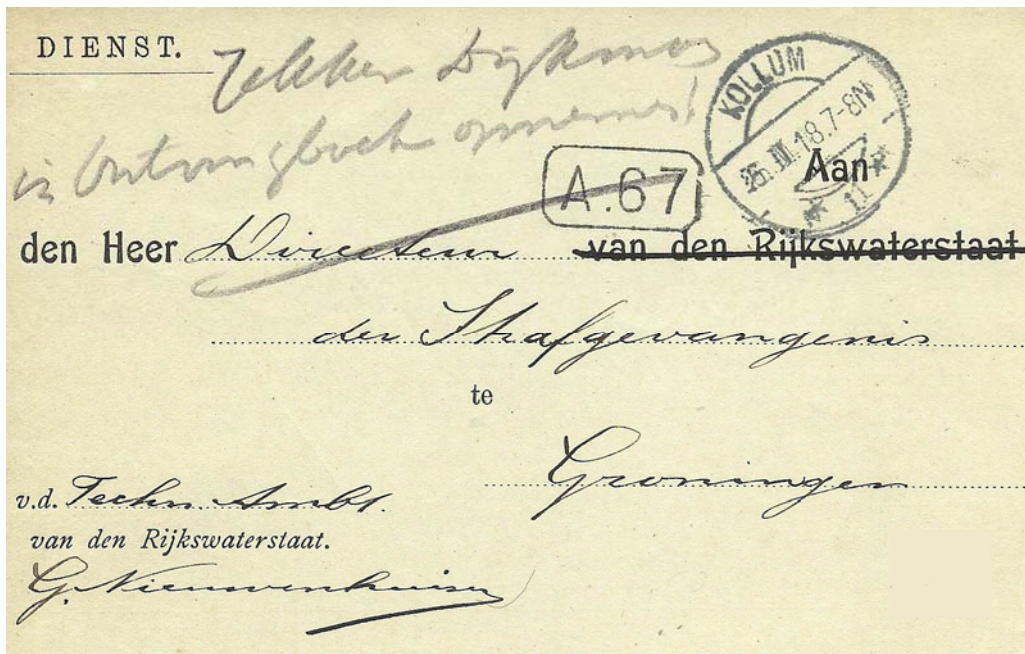 DIENST.
Dijkman
in ontvangboek opnemen!
KOLLUM
25.III.18.7-8N
A.67
Aan
den Heer Directeur van den Rijkswaterstaat
der Strafgevangenis
te
Groningen
v.d. Techn Ambt.
van den Rijkswaterstaat.
G. Nieuwenhuisen